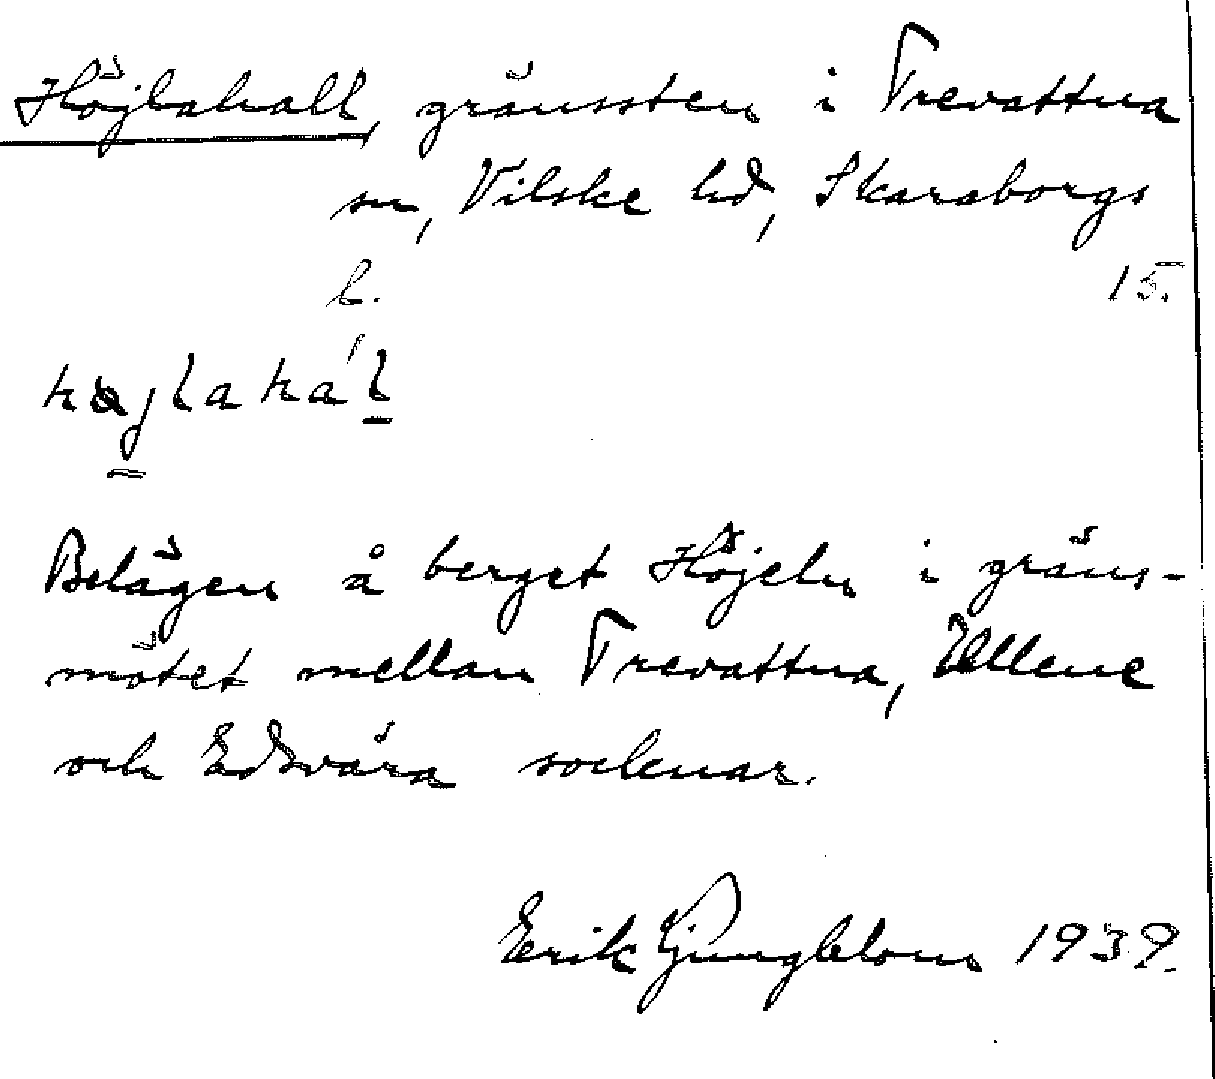 Höjlahall, gränssten i Trevattna
sn, Vilske hd, Skaraborgs
l. 15.
Belägen å berget Höjeln i gräns-
mötet mellan Trevattna, Ullene
och Edsvära socknar.
Erik Ljungblom 1939.